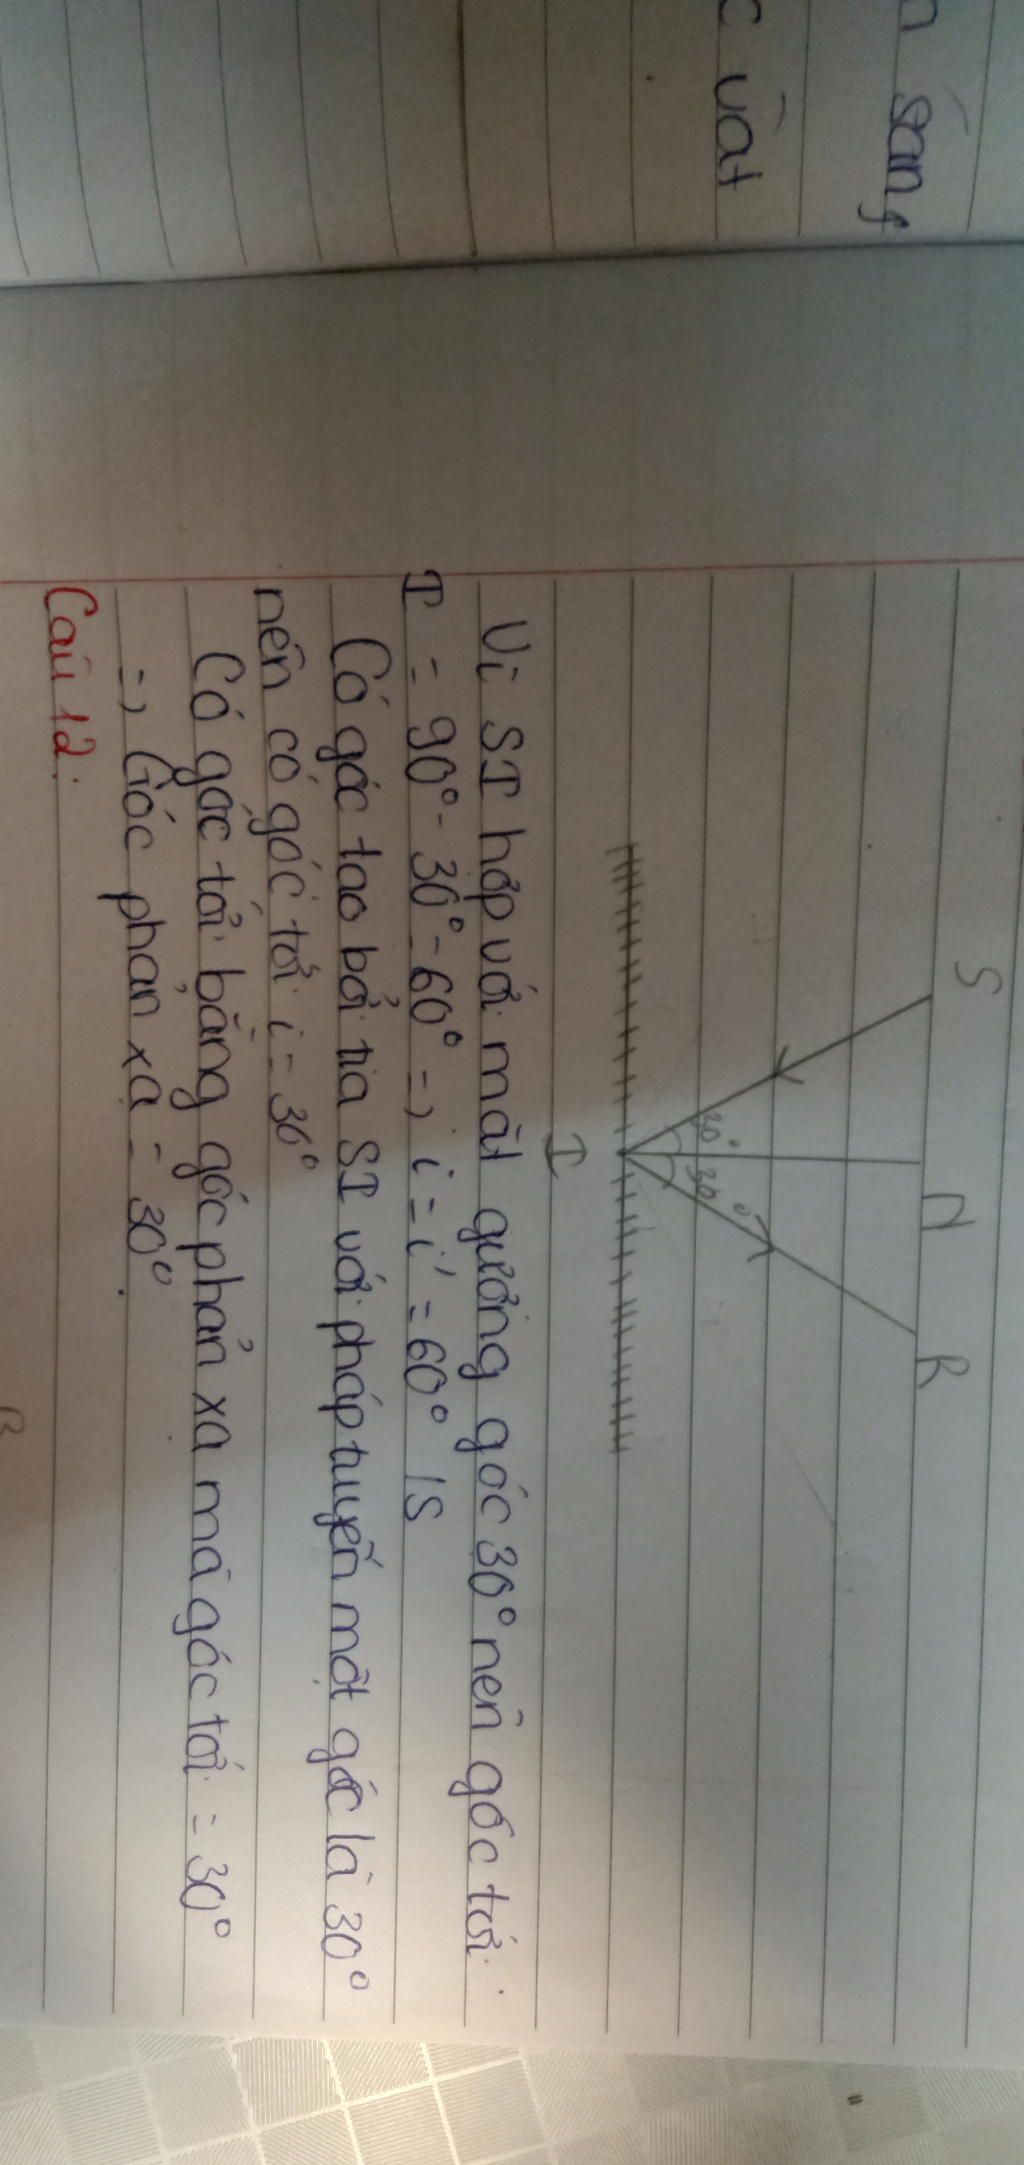 n sáng
c vật
S
N
R
30°
30°
I
Vì SI hợp với mặt gương góc 30° nên góc tới
I = 90° - 30° = 60° =) i = i' = 60° 1S
Có góc tạo bởi tia SI với pháp tuyến một góc là 30°
nên có góc tới i = 30°
Có góc tới bằng góc phản xạ mà góc tới = 30°
=) Góc phản xạ = 30°
Câu 12: